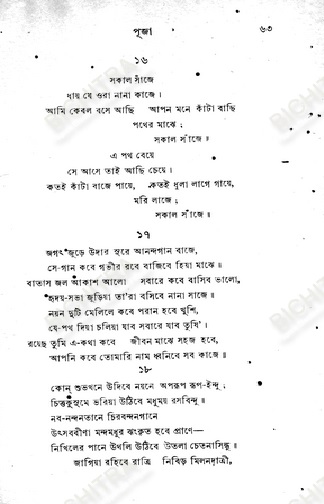 পূজা ৬৩
১৬
সকাল সাঁজে
ধায় যে ওরা নানা কাজে।
আমি কেবল বসে আছি আপন মনে কাঁটা বাছি
পথের মাঝে;
সকাল সাঁজে॥
এ পথ বেয়ে
সে আসে তাই আছি চেয়ে।
কতই কাঁটা বাজে পায়ে, কতই ধুলা লাগে গায়ে,
মরি লাজে;
সকাল সাঁজে॥
১৭
জগৎ জুড়ে উদার সুরে আনন্দগান বাজে,
সে-গান কবে গভীর রবে বাজিবে হিয়া মাঝে॥
বাতাস জল আকাশ আলো সবারে কবে বাসিব ভালো,
হৃদয়-সভা জুড়িয়া তা'রা বসিবে নানা সাজে॥
নয়ন দুটি মেলিলে কবে পরান হবে খুশি,
যে-পথ দিয়া চলিয়া যাব সবারে যাব তুষি'।
রয়েছ তুমি এ-কথা কবে জীবন মাঝে সহজ হবে,
আপনি কবে তোমারি নাম ধ্বনিবে সব কাজে॥
১৮
কোন্ শুভখনে উদিবে নয়নে অপরূপ রূপ-ইন্দু;
চিত্তকুসুমে ভরিয়া উঠিবে মধুময় রসবিন্দু॥
নব-নন্দনতানে চিরবন্দনগানে
উৎসববীণা মন্দমধুর ঝংকৃত হবে প্রাণে—
নিখিলের পানে উথলি উঠিবে উতলা চেতনাসিন্ধু॥
জাগিয়া রহিবে রাত্রি নিবিড় মিলনদাত্রী,